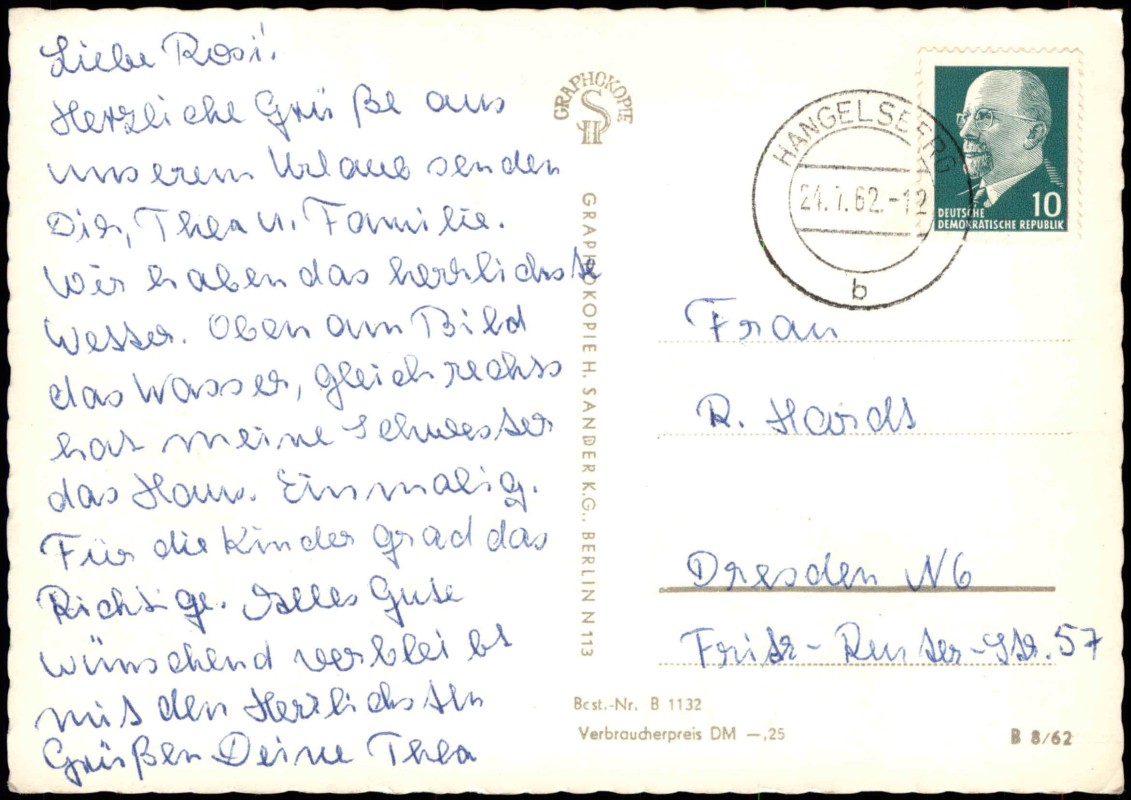 Liebe Rosi!
Herzliche Grüße aus
unserem Urlaub senden
Dir, Thea u. Familie.
Wir haben das herrlichste
Wetter. Oben am Bild
das Wasser, gleich rechts
hat meine Schwester
das Haus. Einmalig.
Für die Kinder grad das
Richtige. Alles Gute
wünschend verbleibt
mit den Herzlichsten
Grüßen Deine Thea
GRAPHOKOPIE
SH
GRAPHOKOPIE H. SANDER K.G., BERLIN N 113
HANGELSBERG
21.7.62.-12
b
10
DEUTSCHE
DEMOKRATISCHE REPUBLIK
Frau
R. Hardt
Dresden N6
Fritz-Reuter-Str. 57
Best.-Nr. B 1132
Verbraucherpreis DM —,25
B 8/62